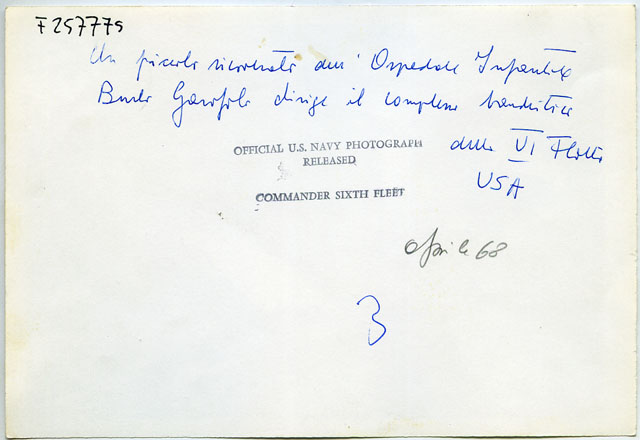 F257779
Un piccolo ricoverato dell' Ospedale Infantile
Burlo Garofolo dirige il complesso bandistico
della VI Flotta
USA
OFFICIAL U.S. NAVY PHOTOGRAPH
RELEASED
COMMANDER SIXTH FLEET
aprile 68
3